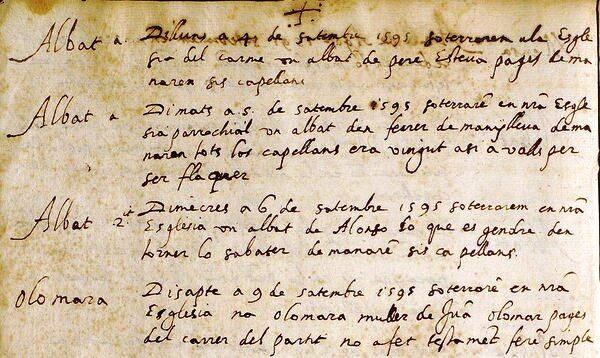 Albat a. Dilluns a 4 de satembre 1595 soterrarem a la Esgle
sia del carme un albat de pere Esteva pages dema
naren sis capellans
Albat a Dimats a .5. de satembre 1595 soterrarē en nrā Esgle
sia parrochial un albat den ferrer de manlleva dema
naren tots los capellans era vingut asi a valls per
ser flaquer
Albat Dimecres a 6 de satembre 1595 soterrarem en nrā
Esglesia un albat de Alonso que es gendre den
torner lo sabater demanarē sis capellans.
olomara Disapte a 9 de satembre 1595 soterrarē en nrā
Esglesia na olomara muller de Juā olomar pages
del carrer del partit no a fet testamēt ferē simple